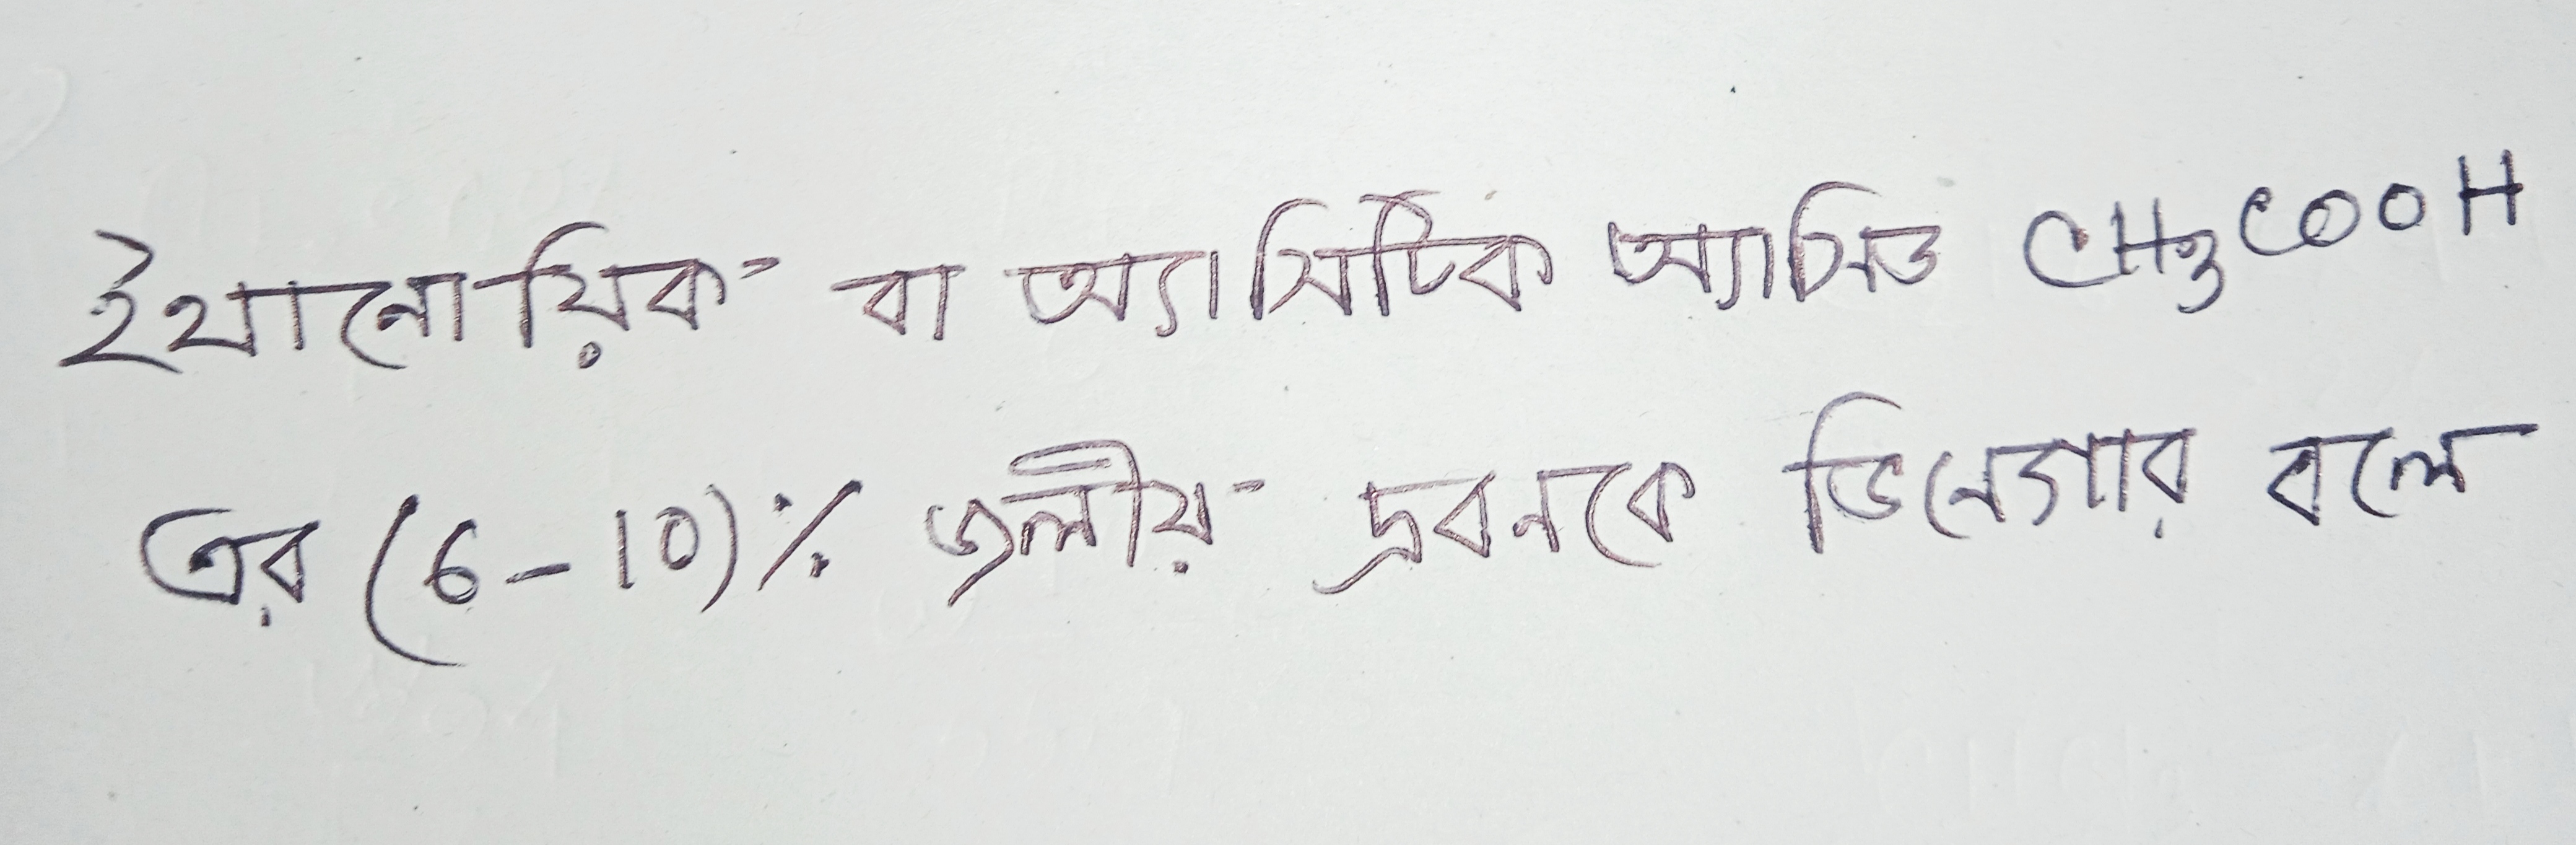 ইথানোয়িক বা অ্যাসিটিক অ্যাসিড CH₃COOH
এর (6-10)% জলীয় দ্রবনকে ভিনেগার বলে